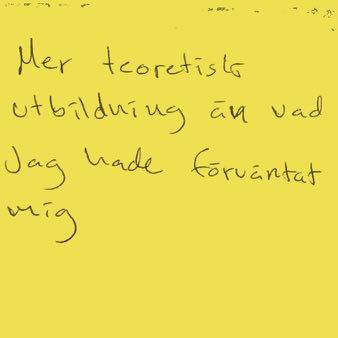 Mer teoretisk
utbildning än vad
Jag hade förväntat
mig